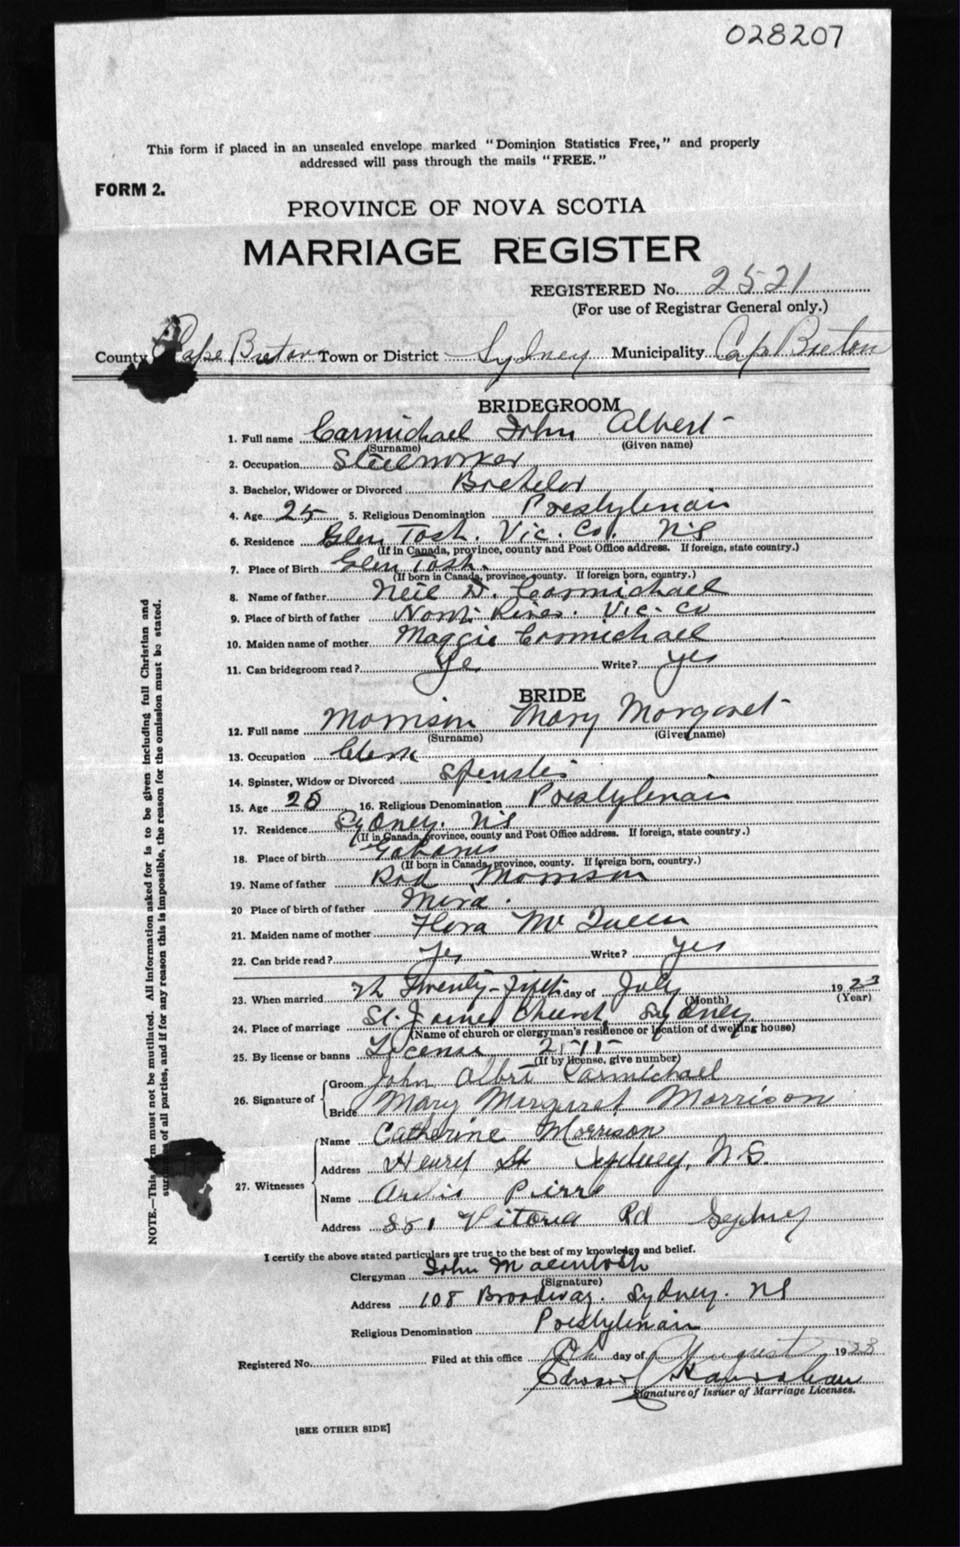 028207
This form if placed in an unsealed envelope marked "Dominion Statistics Free," and properly
addressed will pass through the mails "FREE."
FORM 2.
PROVINCE OF NOVA SCOTIA
MARRIAGE REGISTER
REGISTERED No. 2521
(For use of Registrar General only.)
County Cape Breton Town or District Sydney Municipality Cape Breton
BRIDEGROOM
1. Full name Carmichael John Albert
(Surname) (Given name)
2. Occupation Steelworker
3. Bachelor, Widower or Divorced Bachelor
4. Age 25 5. Religious Denomination Presbyterian
6. Residence Glen Tosh. Vic. Co. NS
(If in Canada, province, county and Post Office address. If foreign, state country.)
7. Place of Birth Glen Tosh.
(If born in Canada, province, county. If foreign born, country.)
8. Name of father Neil D. Carmichael
9. Place of birth of father North River. Vic. Co
10. Maiden name of mother Maggie Carmichael
11. Can bridegroom read? Yes Write? yes
BRIDE
12. Full name Morrison Mary Margaret
(Surname) (Given name)
13. Occupation Clerk
14. Spinster, Widow or Divorced Spinster
15. Age 25 16. Religious Denomination Presbyterian
17. Residence Sydney. NS
(If in Canada, province, county and Post Office address. If foreign, state country.)
18. Place of birth Gabarus
(If born in Canada, province, county. If foreign born, country.)
19. Name of father Rod Morrison
20 Place of birth of father Mira.
21. Maiden name of mother Flora McQueen
22. Can bride read? Yes Write? yes
23. When married Twenty-fifth day of July 1923
(Month) (Year)
24. Place of marriage St. James Church, Sydney
(Name of church or clergyman's residence or location of dwelling house)
25. By license or banns License
(If by license, give number)
26. Signature of Groom John Albert Carmichael
Bride Mary Margaret Morrison
27. Witnesses Name Catherine Morrison
Address Henry St Sydney, N.S.
Name Pierre
Address 851 Vitoria Rd Sydney
I certify the above stated particulars are true to the best of my knowledge and belief.
Clergyman John Macintosh
(Signature)
Address 108 Broadway. Sydney. NS
Religious Denomination Presbyterian
Registered No. Filed at this office day of August 1923
Edward
Signature of Issuer of Marriage Licenses.
[SEE OTHER SIDE]
NOTE.—This must not be mutilated. All information asked for is to be given including full Christian and
of all parties, and if for any reason this is impossible, the reason for the omission must be stated.